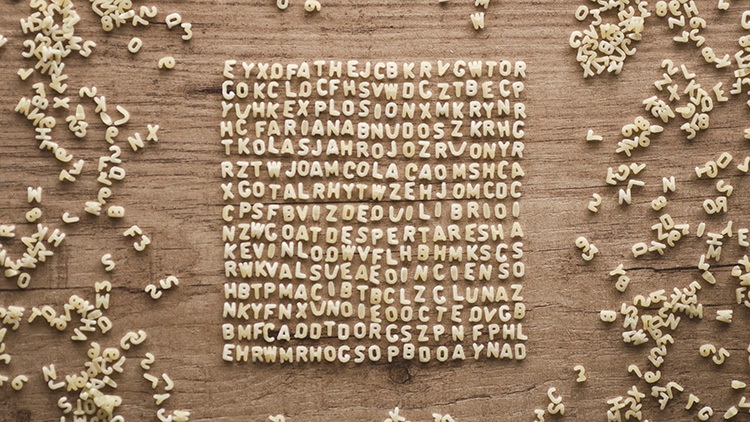 EYXOFATHEJCBKRVGWTOR
GOKCLOCFHSVWDGZTBECP
YUHKEXPLOSIONXMKRYNR
HCFARIANABNUOOSZKRHG
TKOLASJAHROJOZRUONYR
RZTWJOAMCOLACAOMSHCA
XGOTALRHYTWZEHJOMCDC
CPSFBVIZDEQUILIBRIOI
NZWGOATDESPERTARESHA
KEVINLODWVFLHBHMKSGS
RWKVALSUEAEOINCIENSO
HBTPMACIBTBCLZGLUNAZ
NKYFNXUNOIEOCTEDVGB
BMFCAODTDORGSZPNFPHL
EHRWMRHOGSOPBOOAYNAD